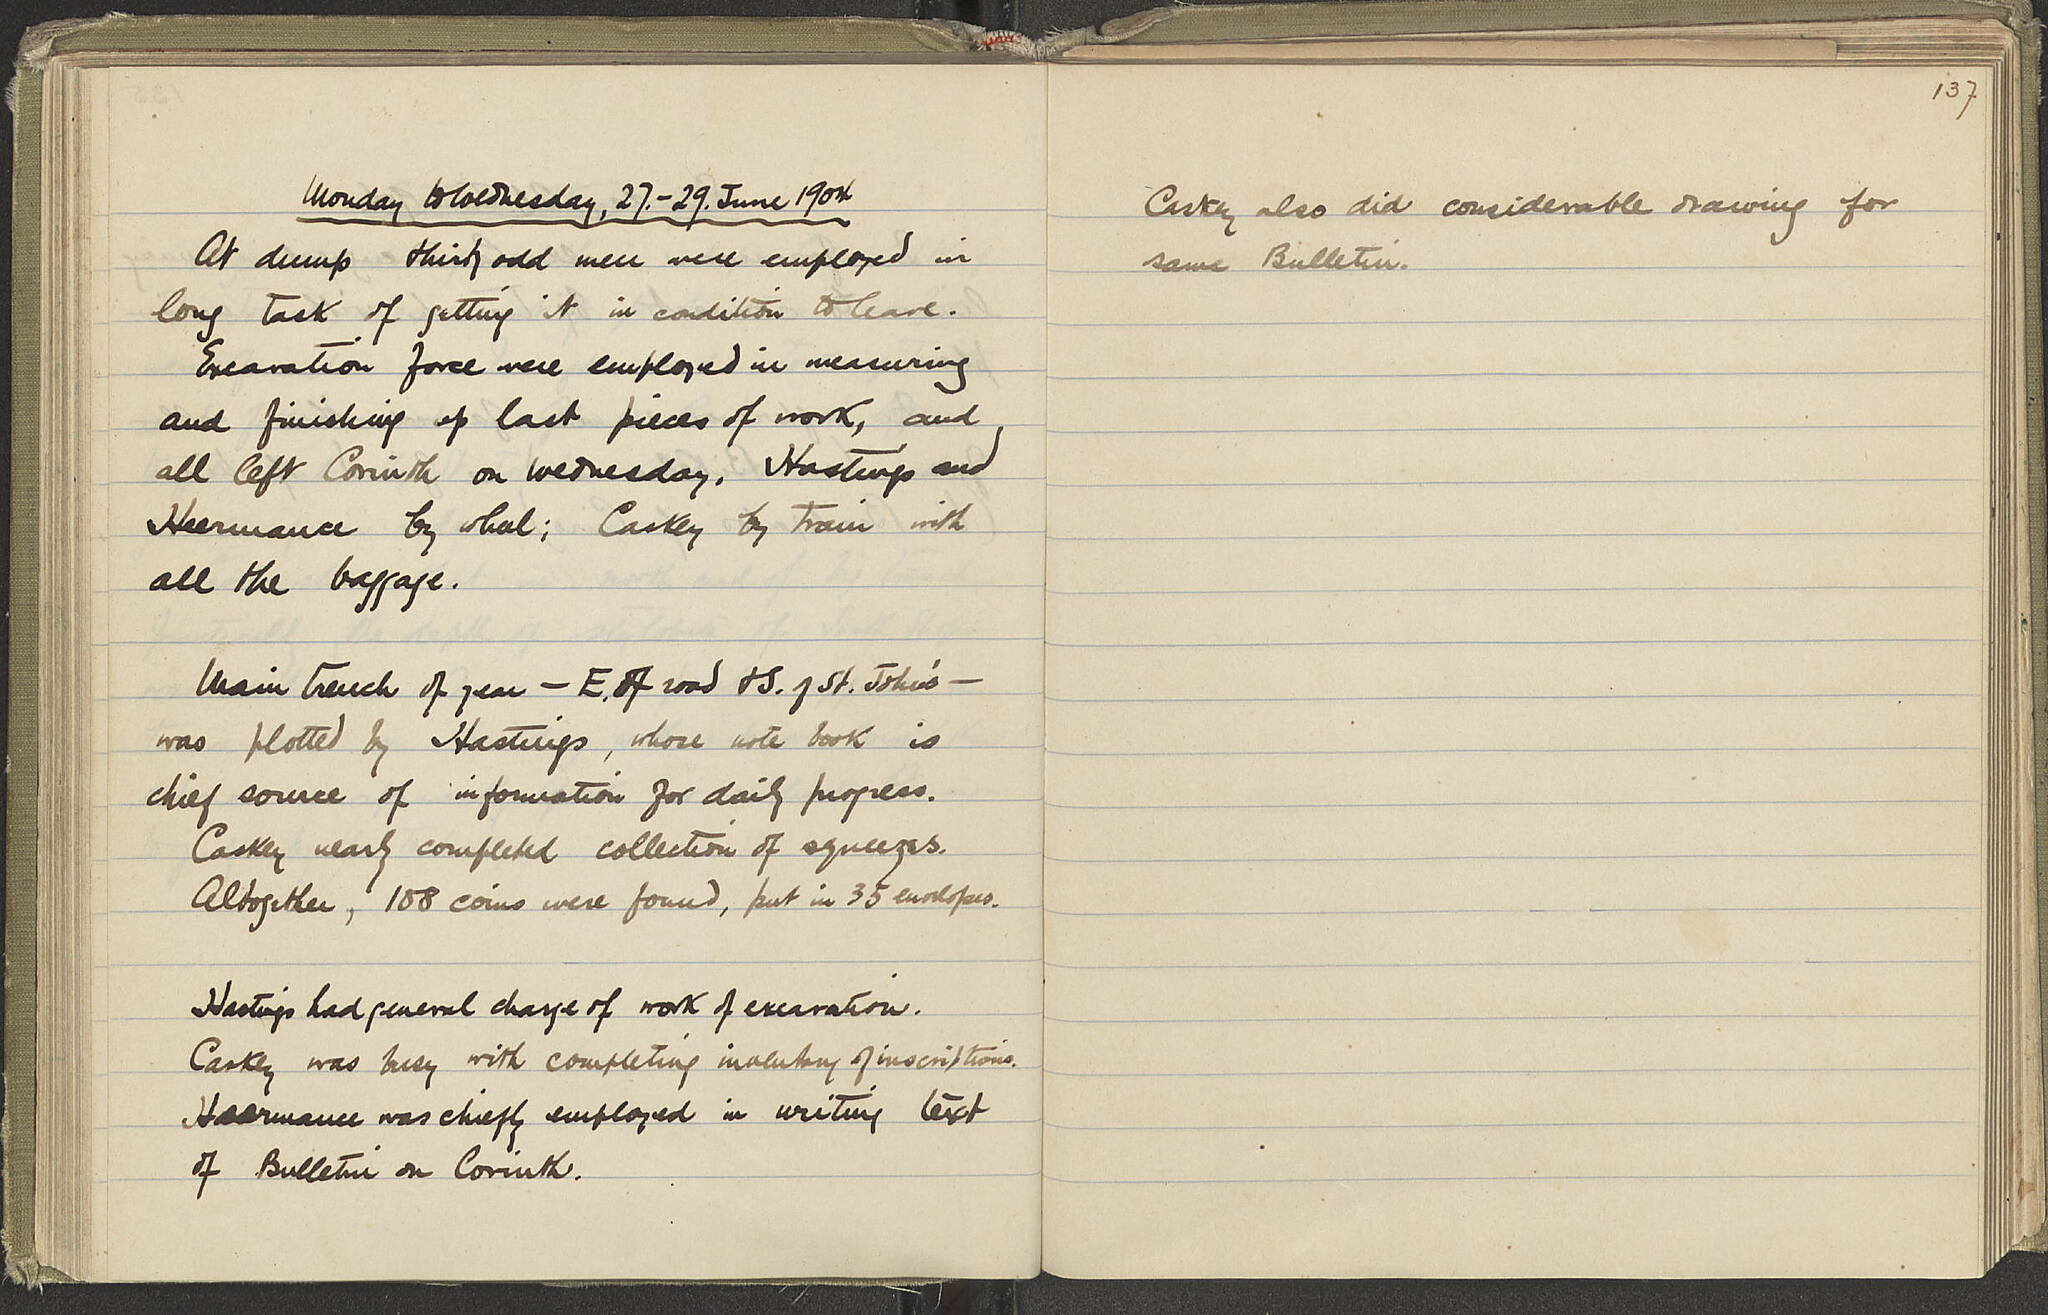 Monday to Wednesday, 27.-29. June 1904
At dump thirty odd men were employed in
long task of getting it in condition to leave.
Excavation force were employed in measuring
and finishing up last pieces of work, and
all left Corinth on Wednesday. Hastings and
Heermance by wheel; Caskey by train with
all the baggage.
Main trench of year — E. of road & S. of St. John's —
was plotted by Hastings, whose note book is
chief source of information for daily progress.
Caskey nearly completed collection of squeezes.
Altogether, 108 coins were found, put in 35 envelopes.
Hastings had general charge of work of excavation.
Caskey was busy with completing inventory of inscriptions.
Heermance was chiefly employed in writing text
of Bulletin on Corinth.
137
Caskey also did considerable drawing for
same Bulletin.